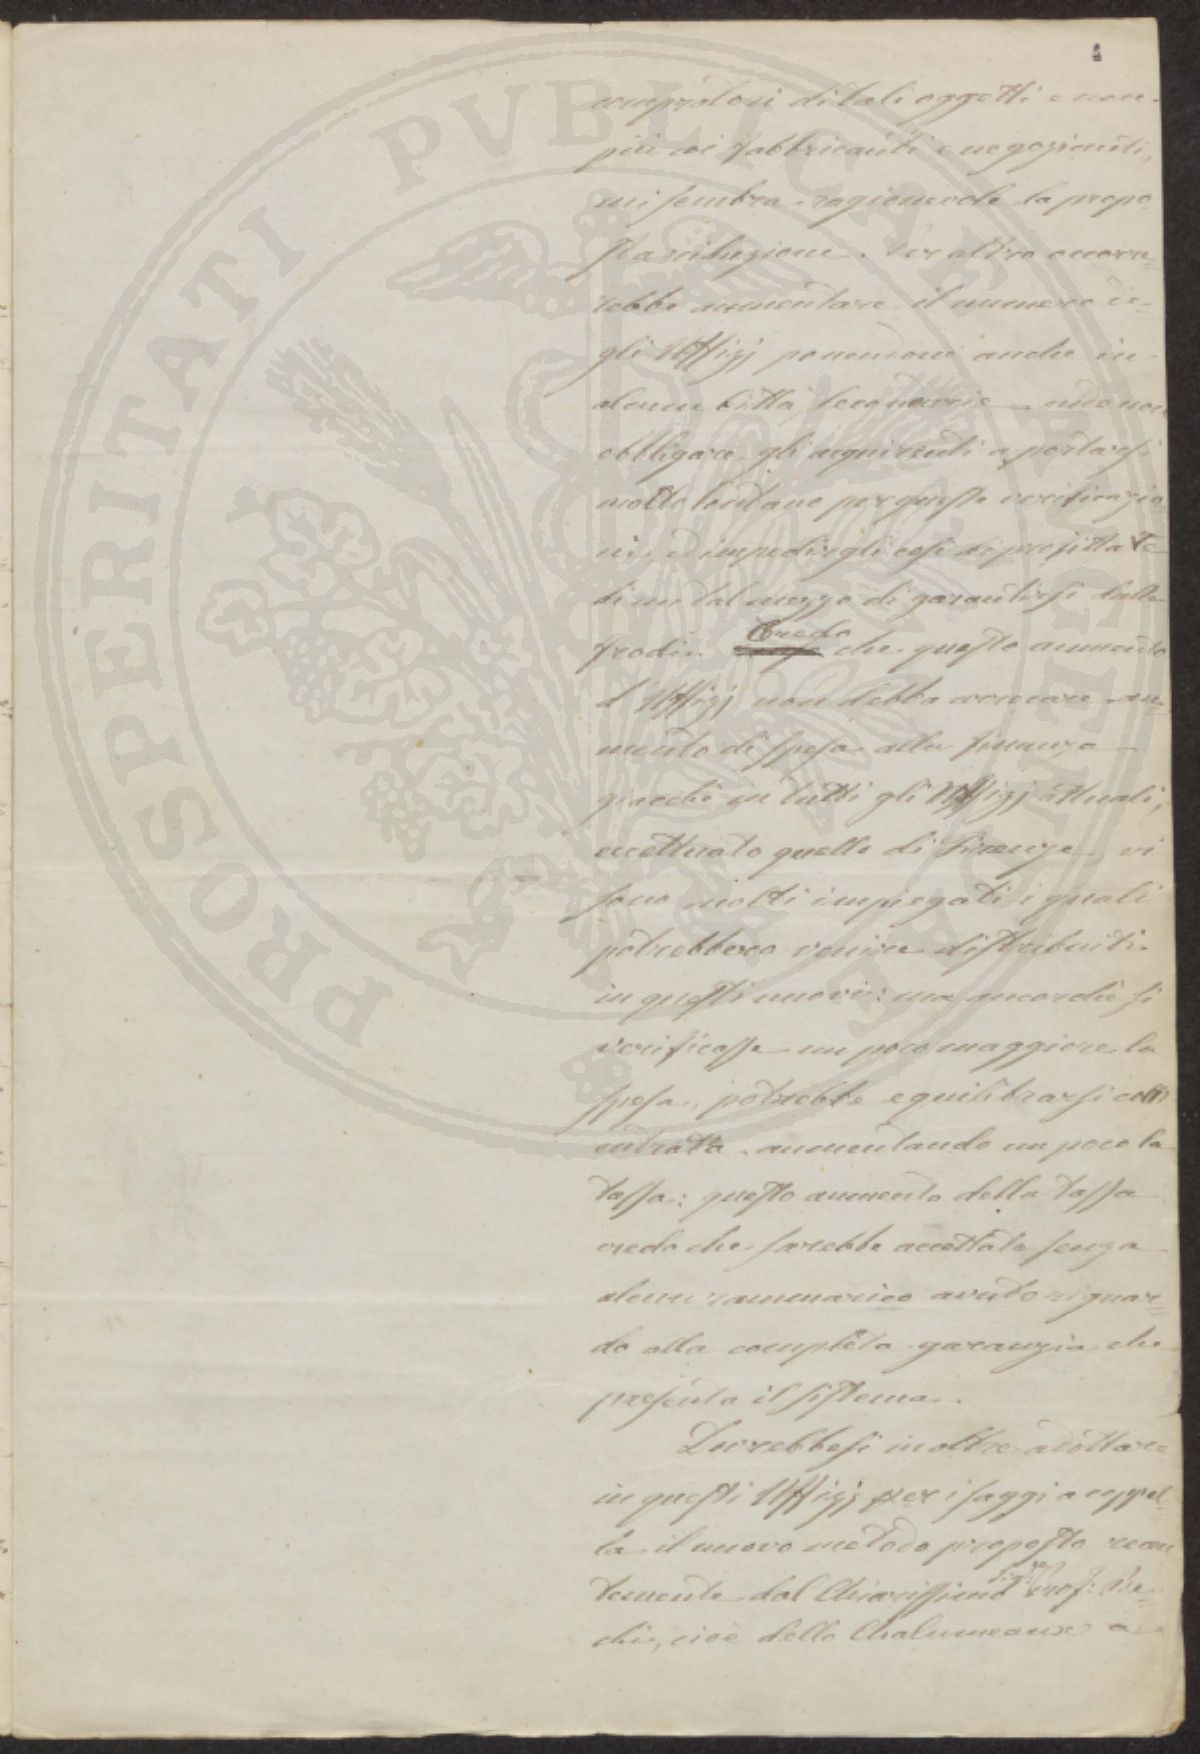 4
compratori di tali oggetti e non
più coi fabbricanti e negozianti,
mi sembra ragionevole la propo
sta istituzione. Per altro occorre=
rebbe aumentare il numero de=
gli Uffizj ponendone anche in
alcune Città secondarie onde non
obbligare gli acquirenti a portarsi
molto lontano per queste verificazio
ni, ed impedirgli così di profittare
di un tal mezzo di garantirsi dalle
frodi. Credo che questo aumento
d'Uffizj non debba arrecare au=
mento di spesa alla finanza
giacchè in tutti gli Uffizj attuali,
eccettuato quello di Firenze, vi
sono molti impiegati i quali
potrebbero venire distribuiti
in questi nuovi: ma ancorchè si
verificasse un poco maggiore la
spesa, potrebbe equilibrarsi coll'
entrata aumentando un poco la
tassa: questo aumento della tassa
credo che sarebbe accettato senza
alcun rammarico avuto riguar=
do alla completa garanzia che
presenta il sistema.
Dovrebbesi inoltre adottare
in questi Uffizj per i saggi a coppel=
la il nuovo metodo proposto recen
temente dal Chiarissimo Sig.re Prof: Be=
chi, cioè dello Chalumeaux a
PROSPERITATI PVBLICAE AVGENDAE